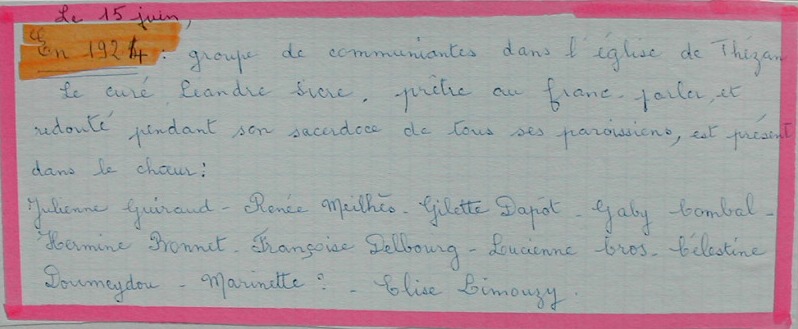 Le 15 juin,
En 1924 : groupe de communiantes dans l'église de Thézan
Le curé, Leandre Sicre, prêtre au franc-parler, et
redouté pendant son sacerdoce de tous ses paroissiens, est présent
dans le chœur :
Julienne Guiraud - Renée Meilhès - Gilette Dapot - Gaby Combal -
Hermine Bonnet - Françoise Delbourg - Lucienne Cros - Célestine
Doumeydou - Marinette ? - Elise Limouzy.